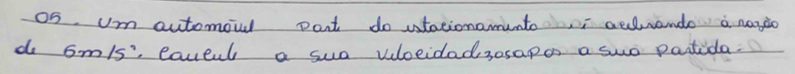 05. Um automóvel part do estacionamento e i aelerando à razão
de 5m/s². Caucule a sua Velocidad 30s após a sua partida.